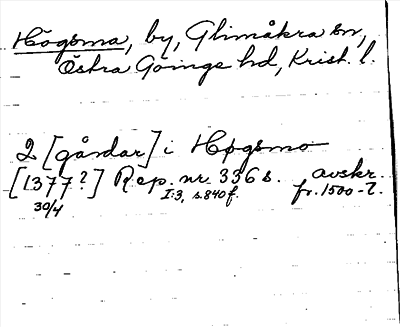 Högsma, by, Glimåkra sn,
Östra Göinge hd, Krist. l.
2 [gårdar] i Høgsmo
[1377?] Rep. nr. 336 s. avskr.
30/4 I:3, s. 840 f. fr. 1500-t.